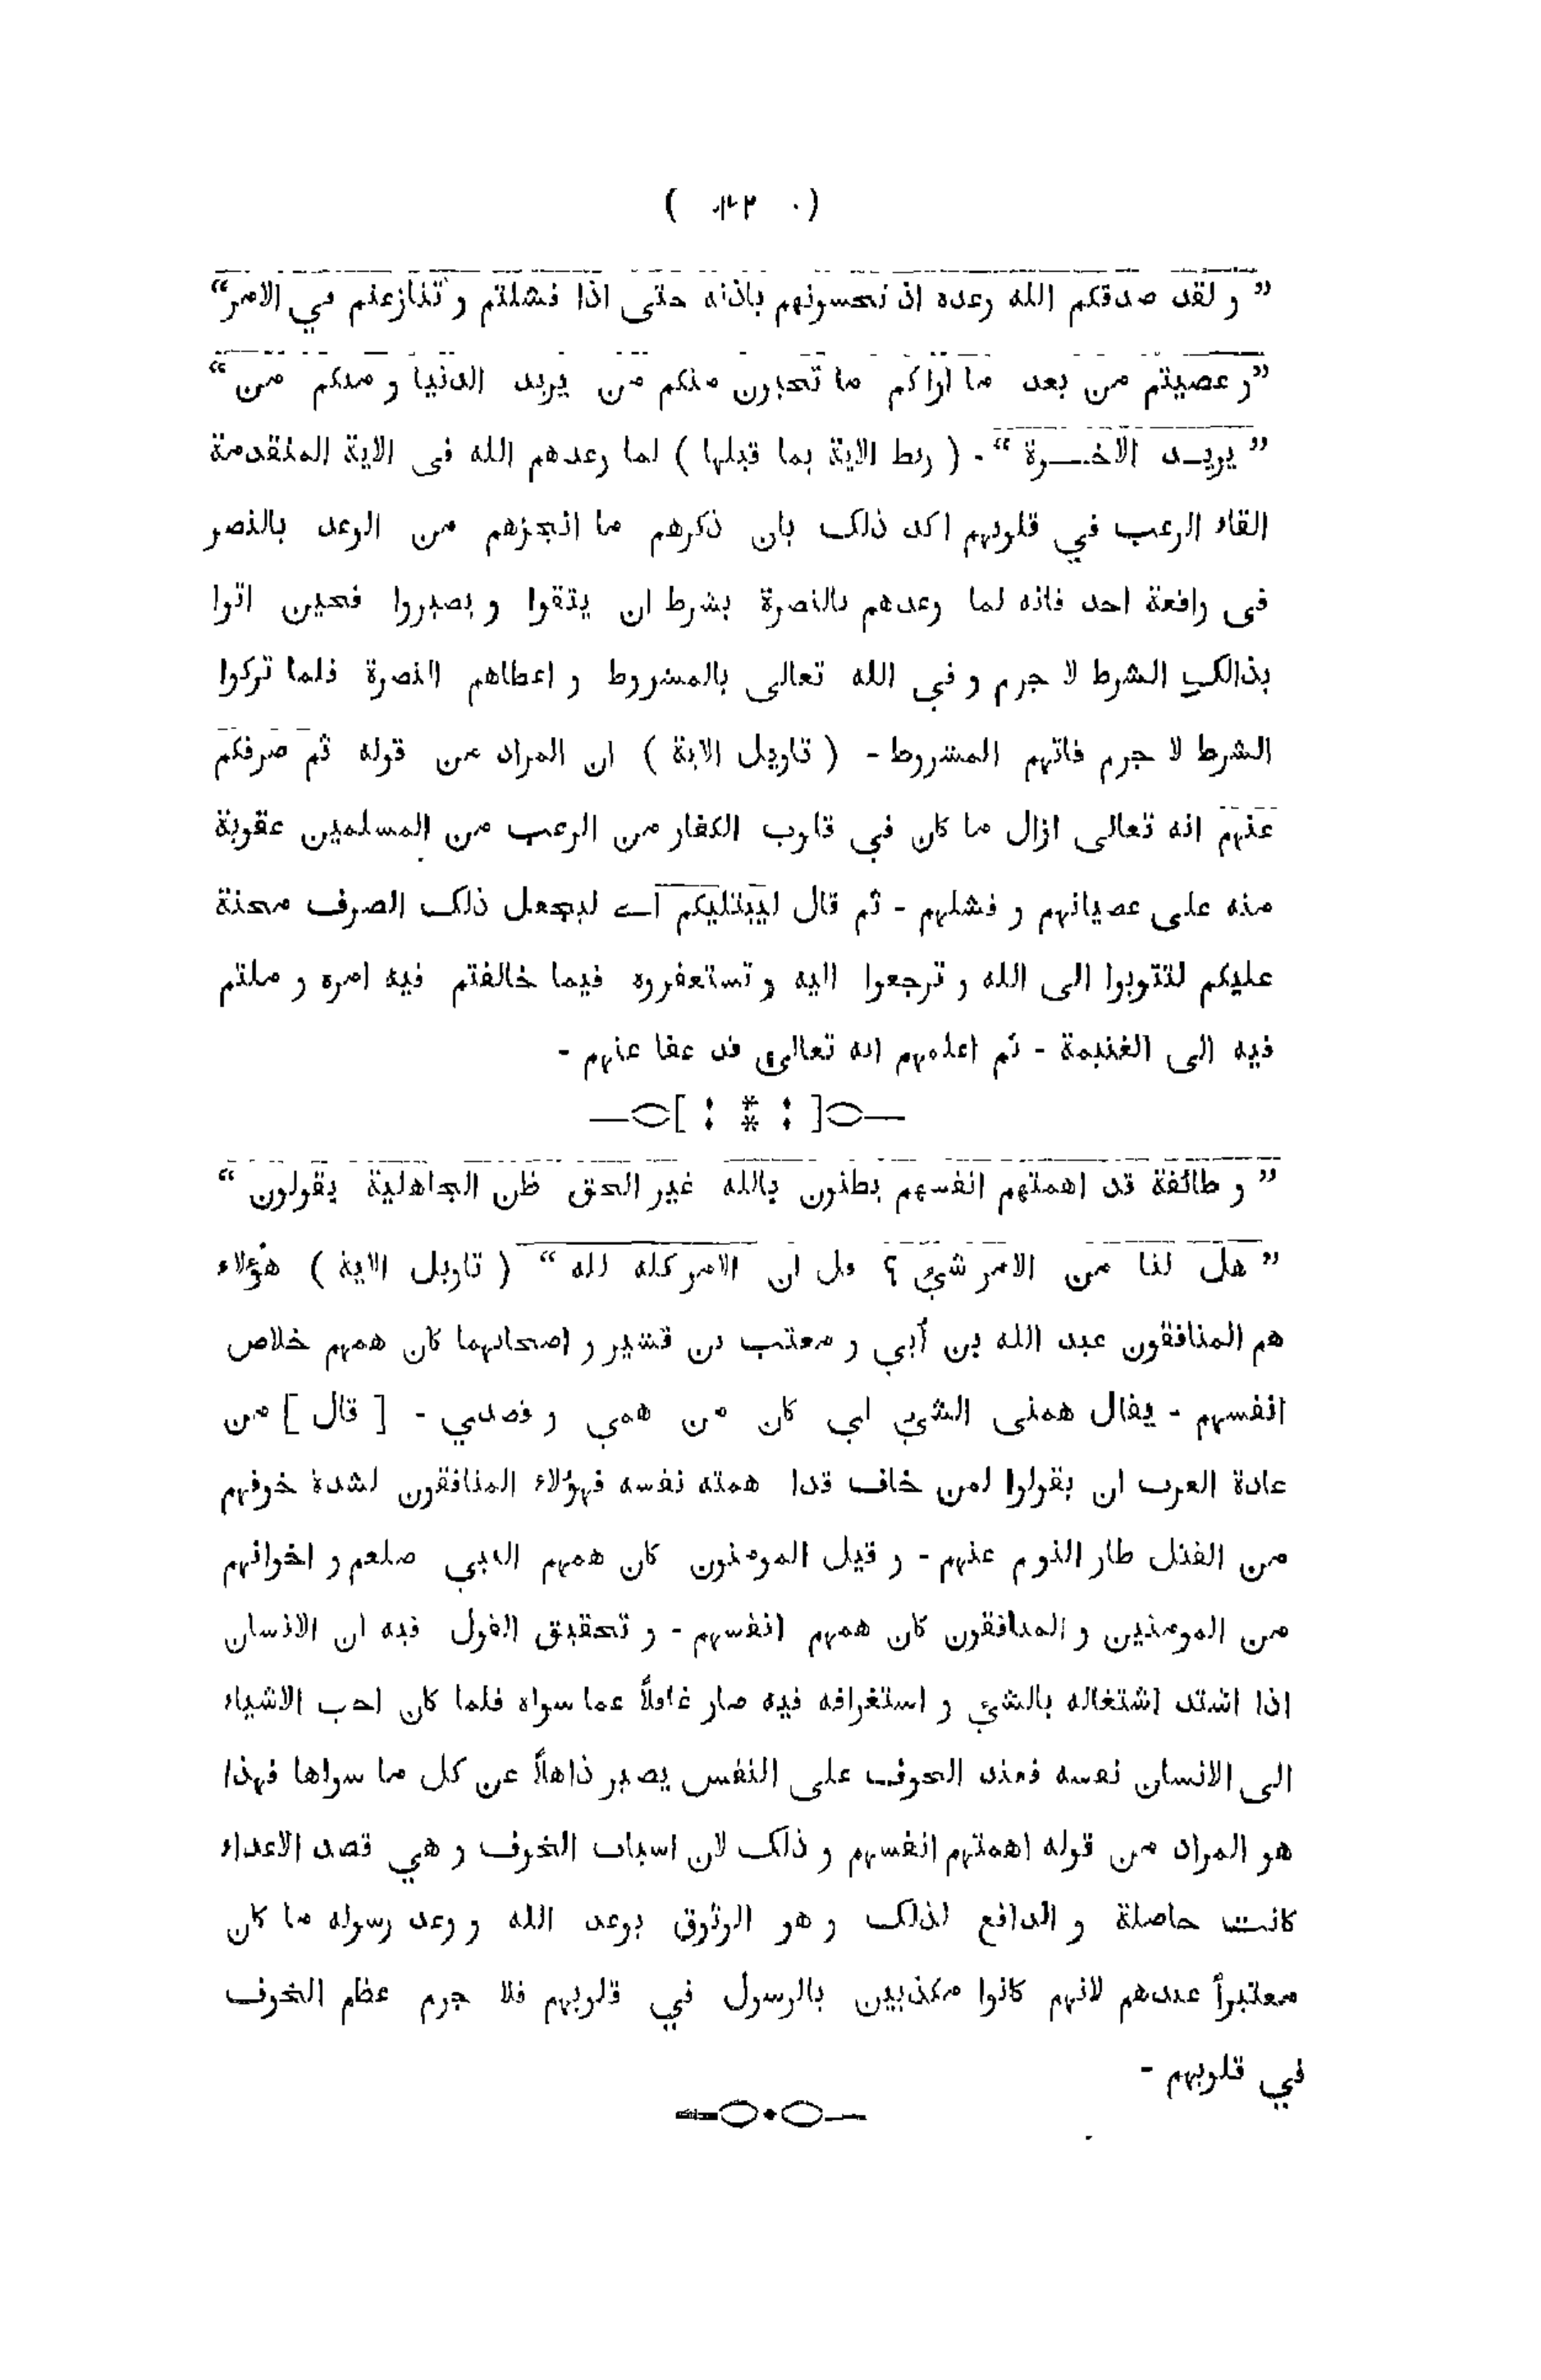 ” و لقد صدقكم الله وعده اذ تحسونهم باذنه حتى اذا فشلتم و تنازعتم في الامر“
”و عصيتم من بعد ما اراكم ما تحبون منكم من يريد الدنيا و منكم من “
” يريــد الاخــرة “ - ( ربط الاية بما قبلها ) لما وعدهم الله فى الاية المتقدمة
القاء الرعب في قلوبهم اكد ذلك بان ذكرهم ما انجزهم من الوعد بالنصر
فى واقعة احد فانه لما وعدهم بالنصرة بشرط ان يتقوا و يصبروا فحين اتوا
بذالك الشرط لا جرم و في الله تعالى بالمشروط و اعطاهم النصرة فلما تركوا
الشرط لا جرم فاتهم المشروط - ( تاويل الاية ) ان المراد من قوله ثم صرفكم
عنهم انه تعالى ازال ما كان في قلوب الكفار من الرعب من المسلمين عقوبة
منه على عصيانهم و فشلهم - ثم قال ليبتليكم اے ليجعل ذلك الصرف محنة
عليكم لتتوبوا الى الله و ترجعوا اليه و تستغفروه فيما خالفتم فيه امره و ملتم
فيه الى الغنيمة - ثم اعلمهم انه تعالى قد عفا عنهم -
” و طائفة قد اهمتهم انفسهم يظنون بالله غير الحق ظن الجاهلية يقولون “
” هل لنا من الامر شئ ؟ قل ان الامر كله لله “ ( تاويل الاية ) هؤلاء
هم المنافقون عبد الله بن أبي و معتب بن قشير و اصحابهما كان همهم خلاص
انفسهم - يقال همنى الشئ اي كان من همي و قصدي - [ قال ] من
عادة العرب ان يقولوا لمن خاف قدا همته نفسه فهؤلاء المنافقون لشدة خوفهم
من القتل طار النوم عنهم - و قيل المومنون كان همهم النبي صلعم و اخوانهم
من المومنين و المنافقون كان همهم انفسهم - و تحقيق القول فيه ان الانسان
اذا اشتد اشتغاله بالشئ و استغراقه فيه صار غافلاً عما سواه فلما كان احب الاشياء
الى الانسان نفسه فعند الخوف على النفس يصير ذاهلاً عن كل ما سواها فهذا
هو المراد من قوله اهمتهم انفسهم و ذلك لان اسباب الخوف و هي قصد الاعداء
كانت حاصلة و الدافع لذلك و هو الوثوق بوعد الله و وعد رسوله ما كان
معتبراً عندهم لانهم كانوا مكذبين بالرسول في قلوبهم فلا جرم عظم الخوف
في قلوبهم -